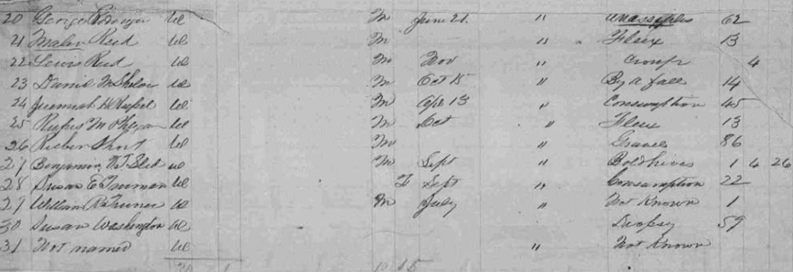 20 George W M June 21 " 62
21 Mahlen Reed W M " Flux 13
22 Lewis Reed W M Nov " Croup 4
23 Daniel W M Oct 15 " By a fall 14
24 Jeremiah H W M Apr 13 " Consumption 45
25 Rufus M W M Oct " Flux 13
26 Short W M " Gravel 86
27 Benjamin W M Sept " Bold hives 1 4 26
28 Susan E Inman W F Sept " Consumption 22
29 William R W M July " Not Known 1
30 Susan Washington W Dropsy 59
31 Not named W " Not Known